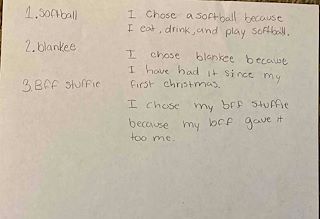 1. softball
I chose a softball because
I eat, drink, and play softball.
2. blankee
I chose blankee because
I have had it since my
first christmas.
3. BFF stuffie
I chose my bff stuffie
because my bff gave it
too me.